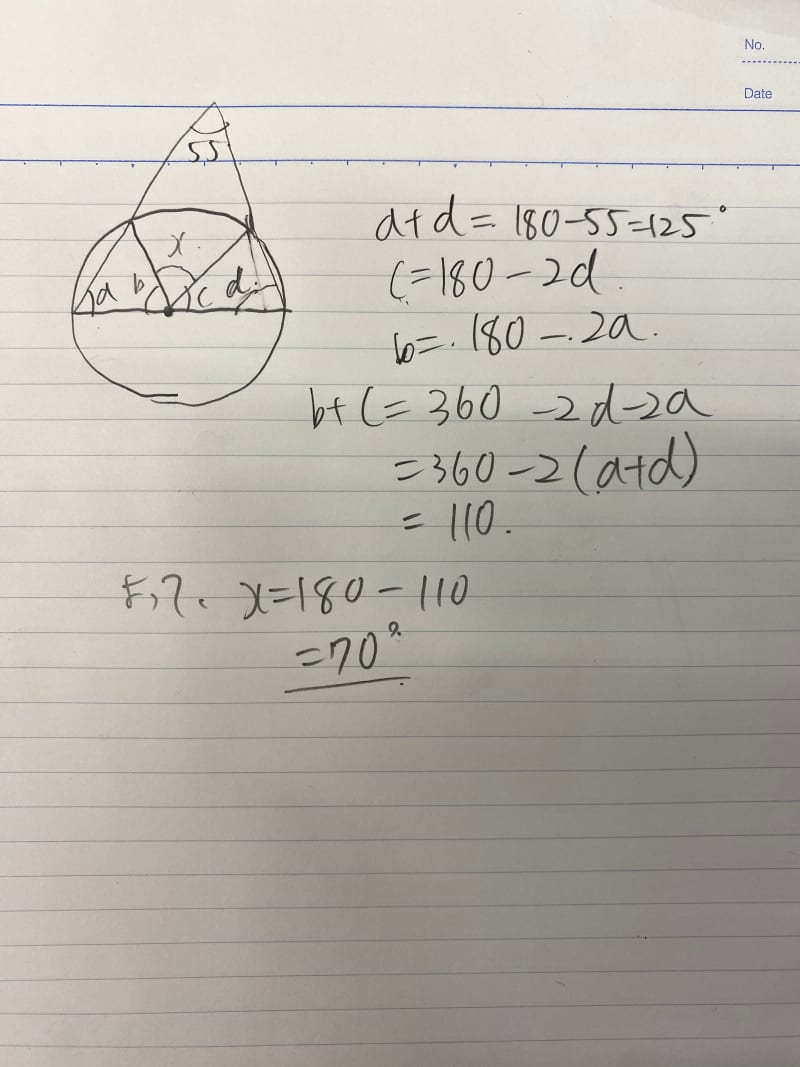 No.
Date
55
x
a b c d
a+d=180-55=125°
c=180-2d.
b=180-2a.
b+c=360-2d-2a
=360-2(a+d)
=110.
よって、x=180-110
=70°